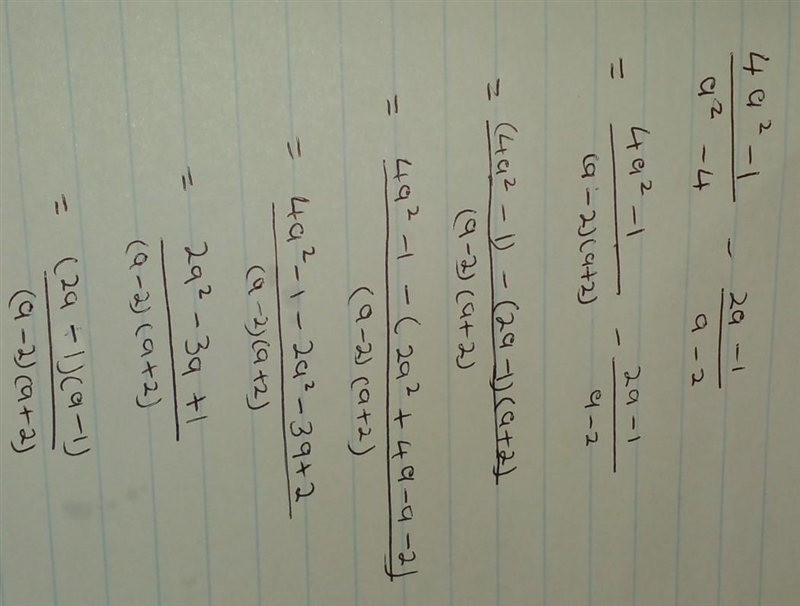 4a² - 1 / a² - 4 - 2a - 1 / a - 2
= 4a² - 1 / (a - 2)(a + 2) - 2a - 1 / a - 2
= (4a² - 1) - (2a - 1)(a + 2) / (a - 2)(a + 2)
= 4a² - 1 - (2a² + 4a - a - 2) / (a - 2)(a + 2)
= 4a² - 1 - 2a² - 3a + 2 / (a - 2)(a + 2)
= 2a² - 3a + 1 / (a - 2)(a + 2)
= (2a - 1)(a - 1) / (a - 2)(a + 2)